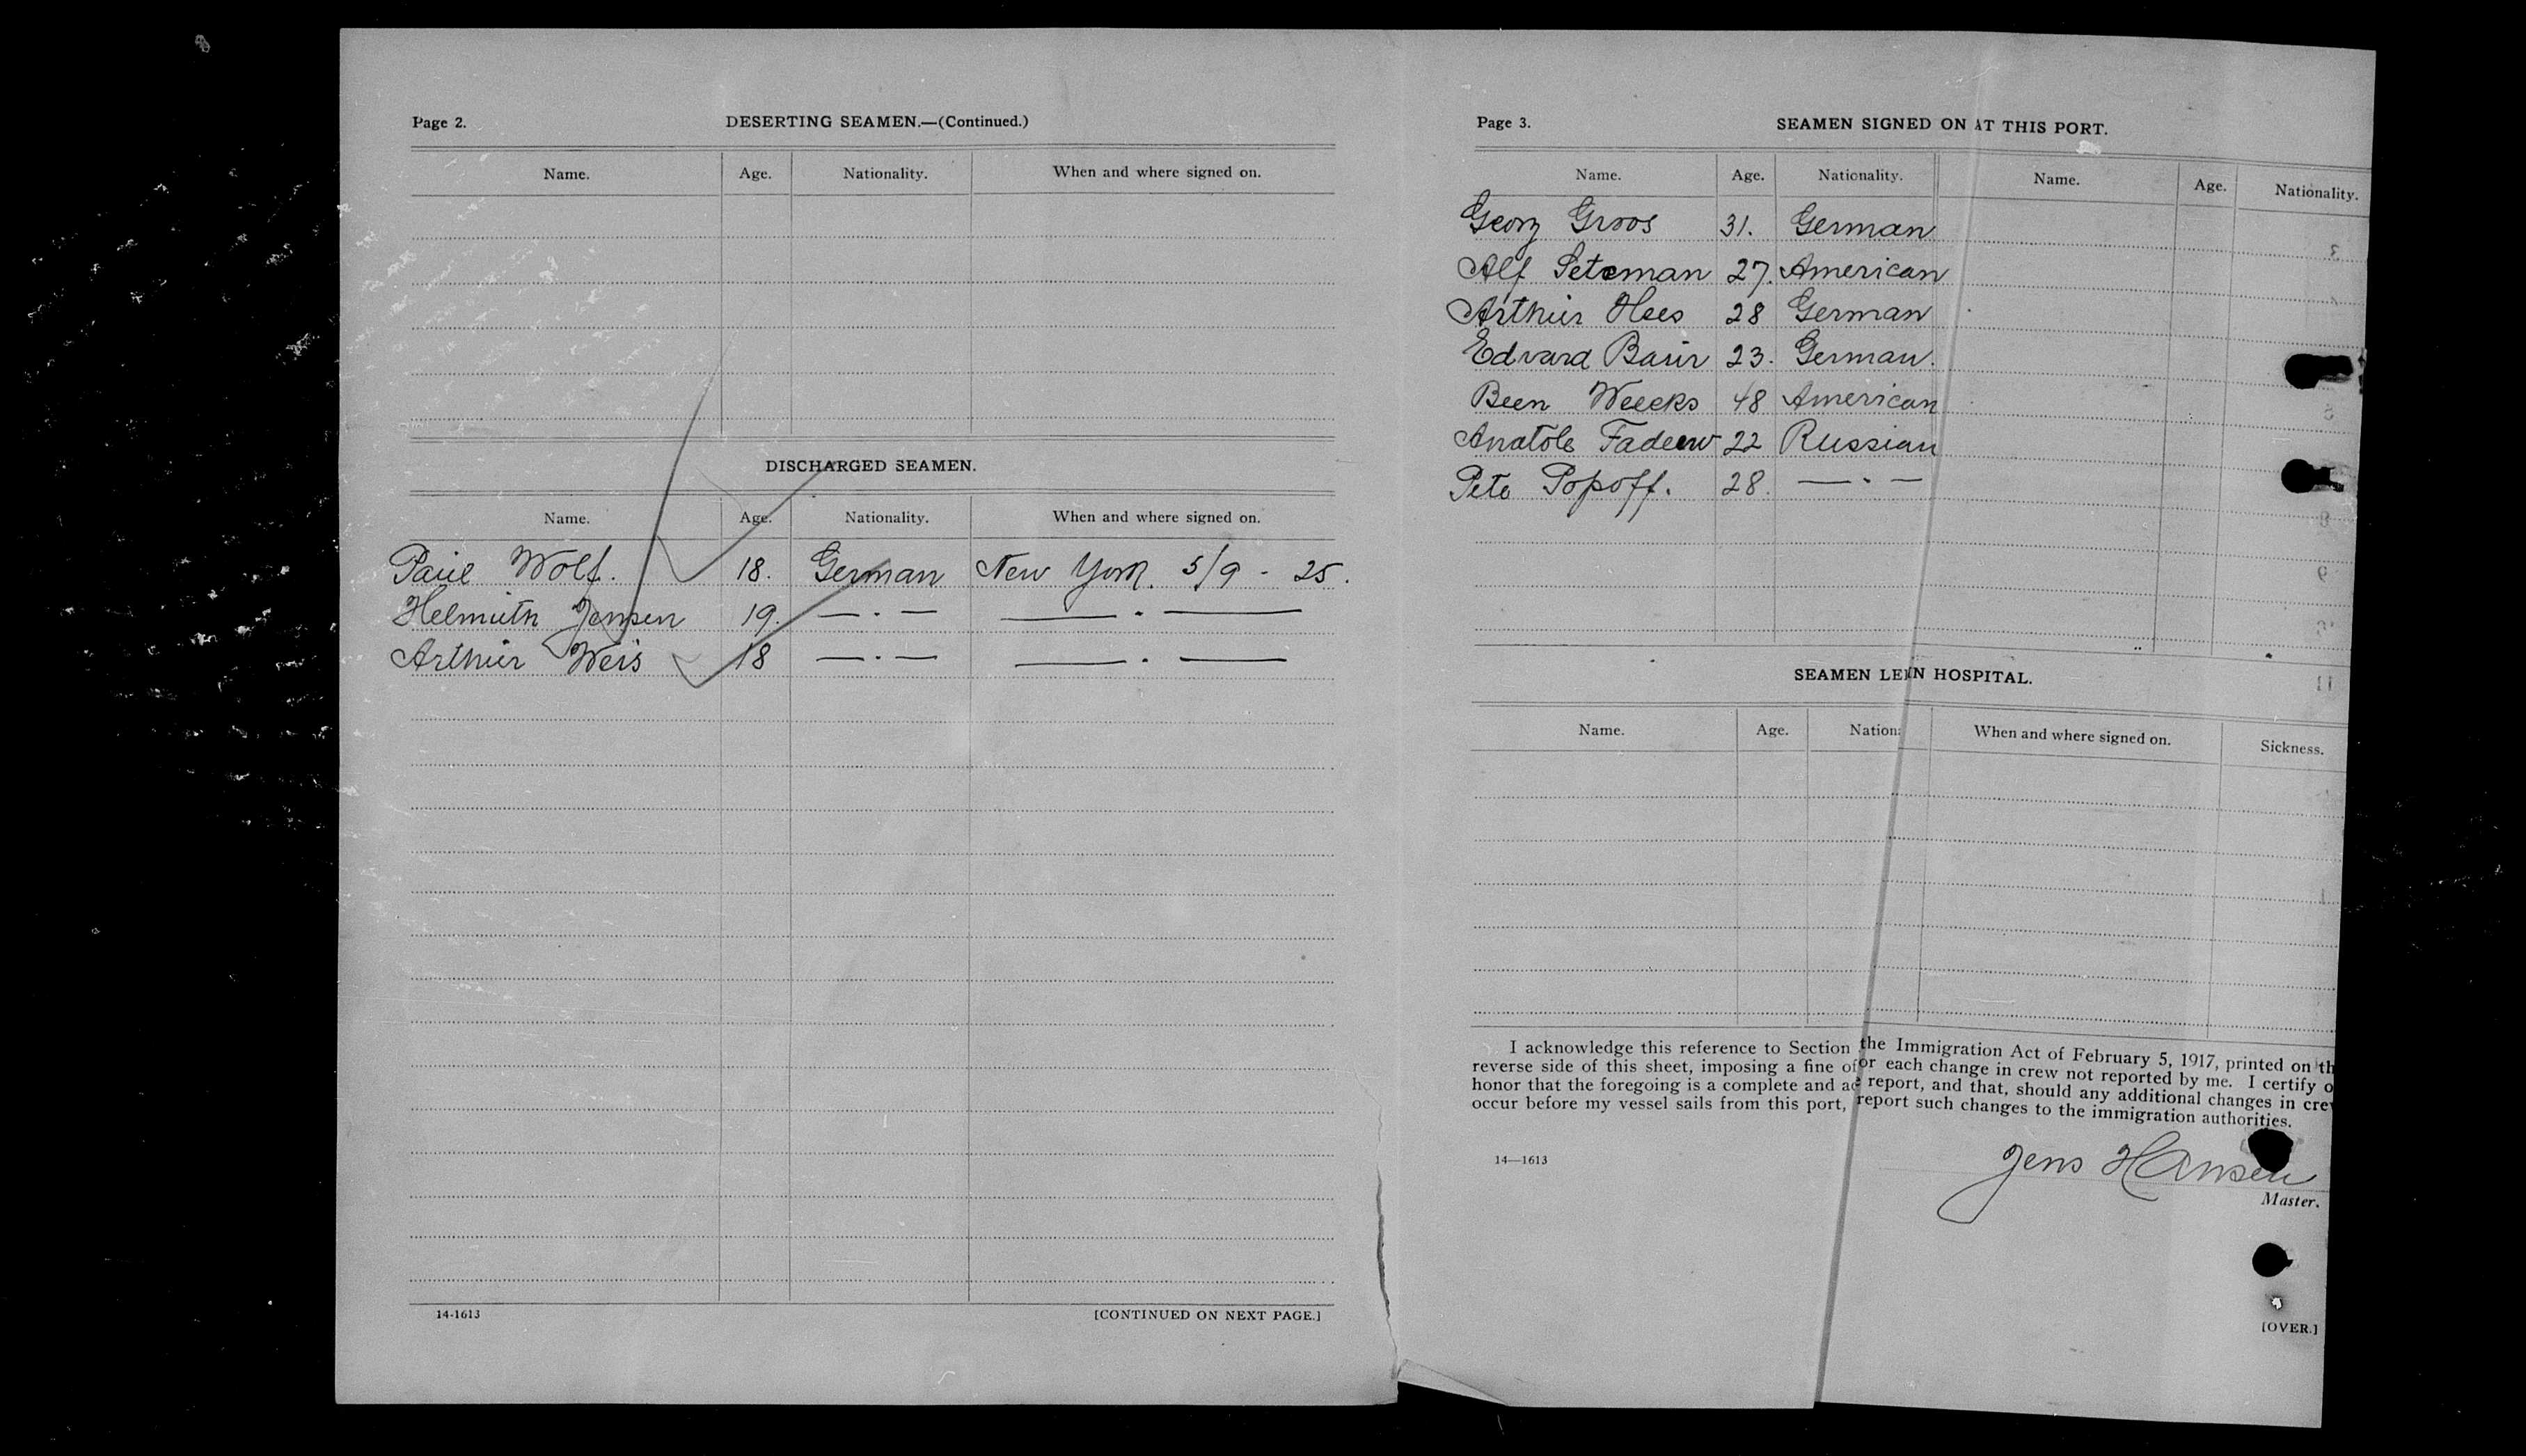 Page 2.
DESERTING SEAMEN.—(Continued.)
Name. Age. Nationality. When and where signed on.
DISCHARGED SEAMEN.
Name. Age. Nationality. When and where signed on.
Paul Wolf. 18. German New York. 5/9 - 25.
Helmuth Jensen 19. — . — — . —
Arthur Weis 18 — . — — . —
14-1613
[CONTINUED ON NEXT PAGE.]
Page 3.
SEAMEN SIGNED ON AT THIS PORT.
Name. Age. Nationality. Name. Age. Nationality.
Georg Groos 31. German
Alf Seteman 27. American
Arthur Hees 28 German
Edvard Baur 23. German.
Been Weecks 48 American
Anatole Fadeew 22 Russian
Pete Popoff. 28. — . —
SEAMEN LE IN HOSPITAL.
Name. Age. Nation When and where signed on. Sickness.
I acknowledge this reference to Section the Immigration Act of February 5, 1917, printed on th
reverse side of this sheet, imposing a fine of or each change in crew not reported by me. I certify o
honor that the foregoing is a complete and ac report, and that, should any additional changes in cre
occur before my vessel sails from this port, report such changes to the immigration authorities.
14—1613
Jens Hansen
Master.
[OVER.]